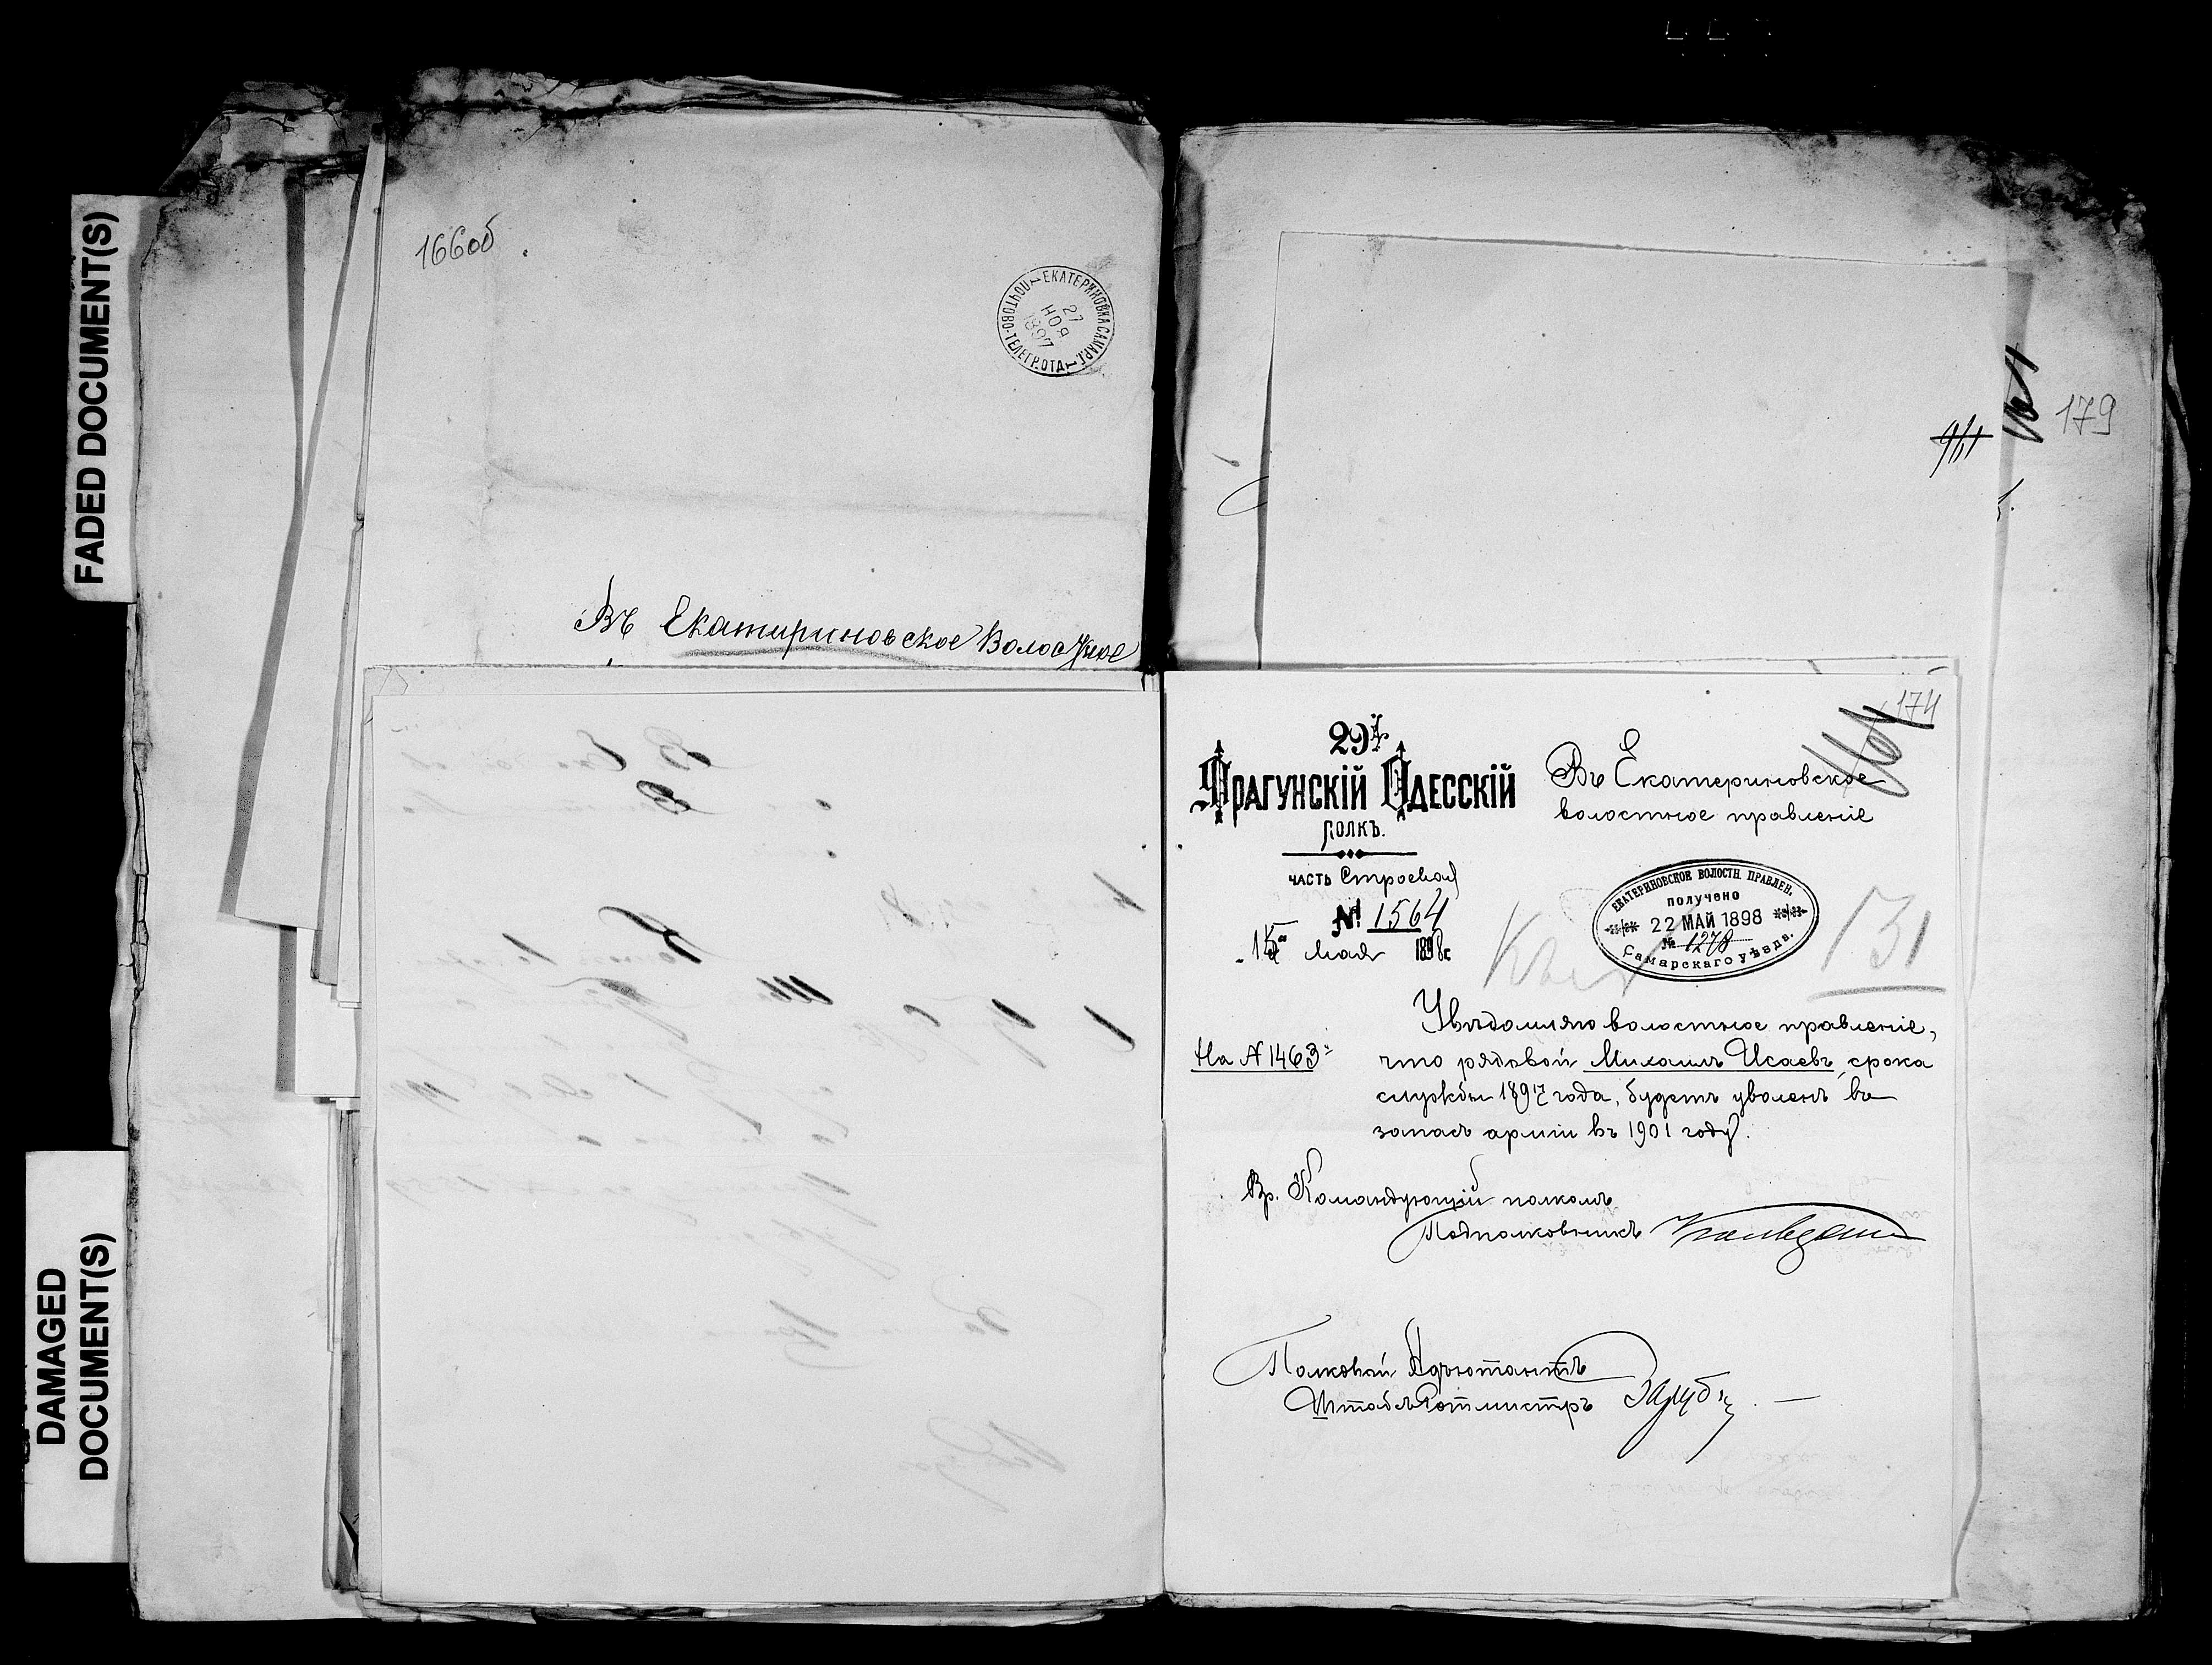 FADED DOCUMENT(S)
DAMAGED
DOCUMENT(S)
166об
ЕКАТЕРИНОВКА САМАР.
ПОЧТОВО-ТЕЛЕГР. ОТД.
27
НОЯ
1897
Въ Екатириновское Волостное
179
174
29й
ДРАГУНСКІЙ ОДЕССКІЙ
ПОЛКЪ.
ЧАСТЬ Строевая
№ 1564
15 Мая 1898 г.
Въ Екатериновское
волостное правленіе
ЕКАТЕРИНОВСКОЕ ВОЛОСТН. ПРАВЛЕН.
ПОЛУЧЕНО
22 МАЙ 1898
№ 1278
Самарскаго Уѣзда.
131
На № 1463
Увѣдомляю волостное правленіе,
что рядовой Михаилъ Исаевъ, срока
службы 1897 года, будетъ уволенъ въ
запасъ арміи въ 1901 году.
Вр. Командующій полкомъ
Подполковникъ
Полковой Адъютантъ
Штабсъ Ротмистръ